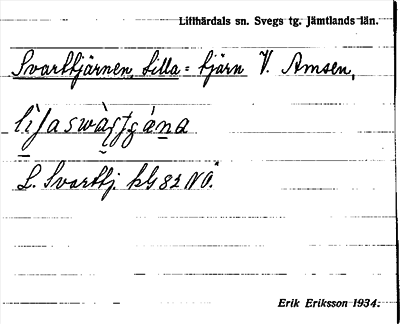 Lillhärdals sn. Svegs tg. Jämtlands län.
Svarttjärnen, Lilla = tjärn V. Amsen,
L. Svarttj. kb 82 NO.
Erik Eriksson 1934.